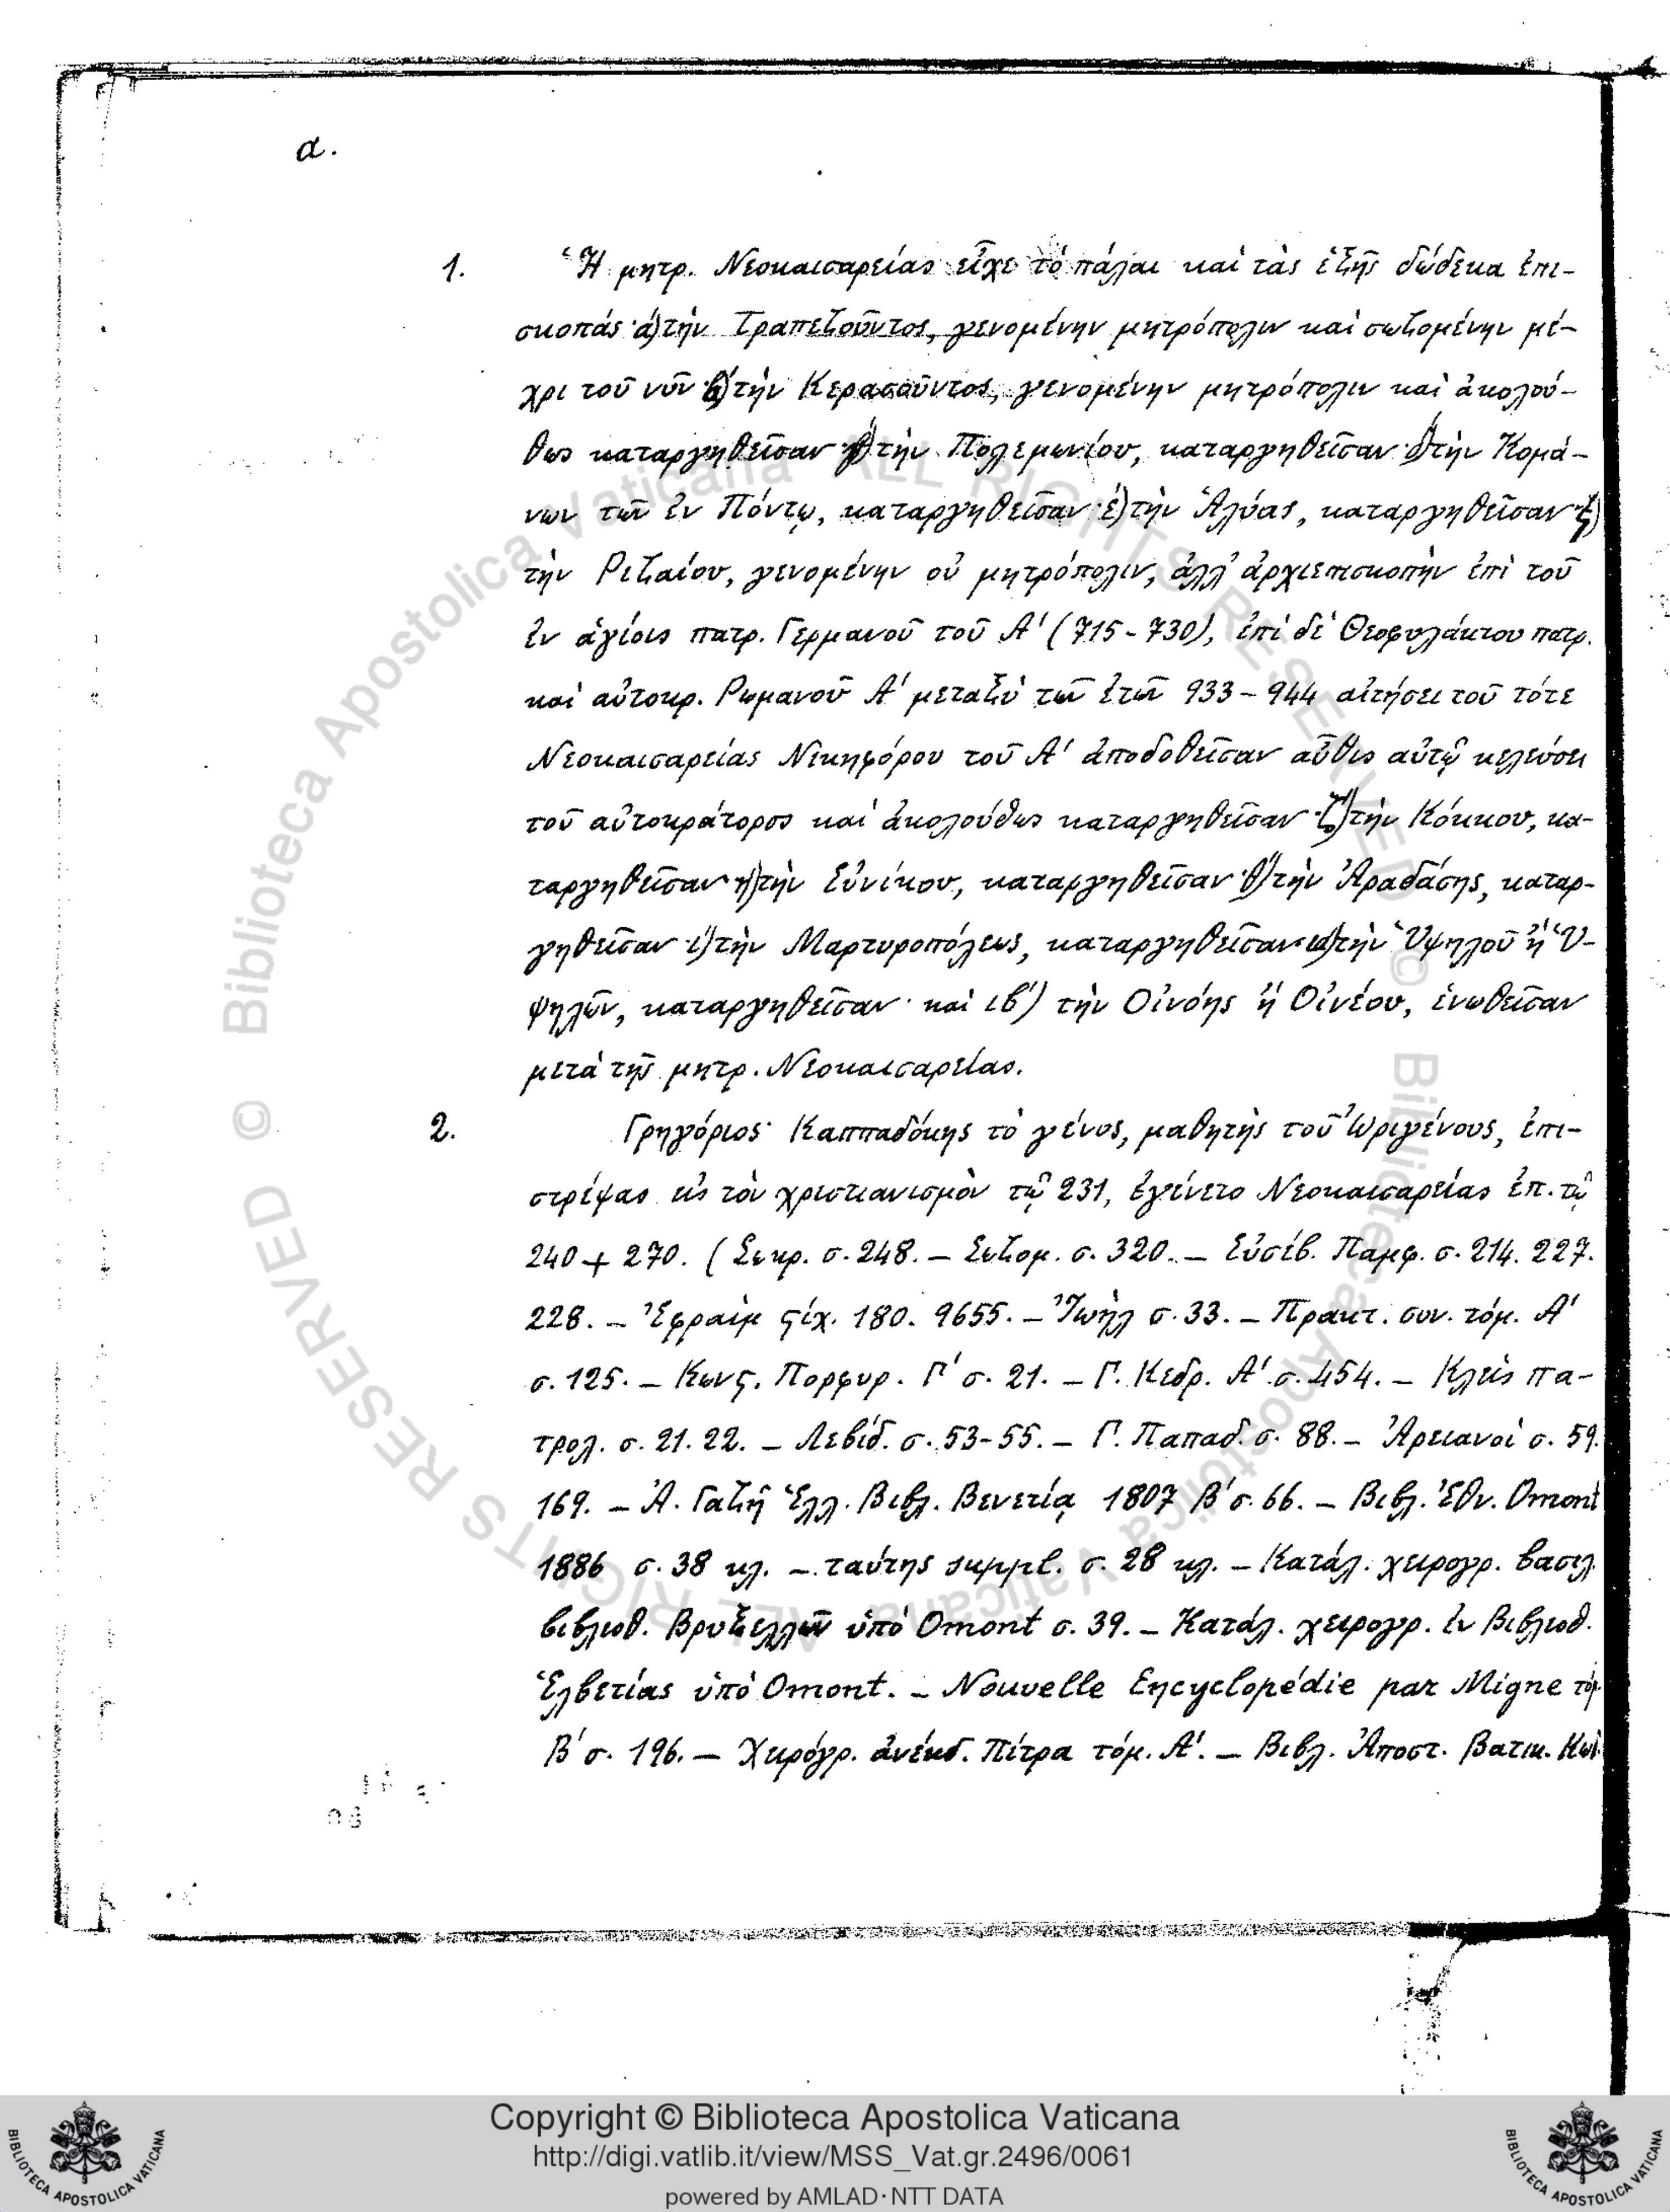 α.
1. Ἡ μητρ. Νεοκαισαρείας εἶχε τὸ πάλαι καὶ τὰς ἑξῆς δώδεκα ἐπι-
σκοπάς· ά) τὴν Τραπεζοῦντος, γενομένην μητρόπολιν καὶ σωζομένην μέ-
χρι τοῦ νῦν· β́) τὴν Κερασοῦντος, γενομένην μητρόπολιν καὶ ἀκολού-
θως καταργηθεῖσαν· γ́) τὴν Πολεμωνίου, καταργηθεῖσαν· δ́) τὴν Κομά-
νων τῶν ἐν Πόντῳ, καταργηθεῖσαν· έ) τὴν Ἀλύας, καταργηθεῖσαν· ς)
τὴν Ριζαίου, γενομένην οὐ μητρόπολιν, ἀλλ' ἀρχιεπισκοπὴν ἐπὶ τοῦ
ἐν ἁγίοις πατρ. Γερμανοῦ τοῦ Α' (715-730), ἐπὶ δὲ Θεοφυλάκτου πατρ.
καὶ αὐτοκρ. Ρωμανοῦ Α' μεταξὺ τῶν ἐτῶν 933-944 αἰτήσει τοῦ τότε
Νεοκαισαρείας Νικηφόρου τοῦ Α' ἀποδοθεῖσαν αὖθις αὐτῷ κελεύσει
τοῦ αὐτοκράτορος καὶ ἀκολούθως καταργηθεῖσαν· ζ́) τὴν Κόκκου, κα-
ταργηθεῖσαν· ή) τὴν Εὐνίκου, καταργηθεῖσαν· θ́) τὴν Ἀραδάσης, καταρ-
γηθεῖσαν· ί) τὴν Μαρτυροπόλεως, καταργηθεῖσαν· ιά) τὴν Ὑψηλοῦ ἢ Ὑ-
ψηλῶν, καταργηθεῖσαν· καὶ ιβ') τὴν Οἰνόης ἢ Οἰνέου, ἑνωθεῖσαν
μετὰ τῆς μητρ. Νεοκαισαρείας.
2. Γρηγόριος· Καππαδόκης τὸ γένος, μαθητὴς τοῦ Ὠριγένους, ἐπι-
στρέψας εἰς τὸν χριστιανισμὸν τῷ 231, ἐγένετο Νεοκαισαρείας ἐπ. τῷ
240 + 270. (Σωκρ. σ. 248. — Σωζομ. σ. 320. — Εὐσέβ. Παμφ. σ. 214. 227.
228. — Ἐφραὶμ ςίχ. 180. 9655. — Ἰωὴλ σ. 33. — Πρακτ. συν. τόμ. Α'
σ. 125. — Κωνς. Πορφυρ. Γ' σ. 21. — Γ. Κεδρ. Α' σ. 454. — Κλεὶς πα-
τρολ. σ. 21. 22. — Λεβίδ. σ. 53-55. — Γ. Παπαδ. σ. 88. — Ἀρειανοὶ σ. 59.
169. — Ἀ. Γαζῆ Ἑλλ. Βιβλ. Βενετίᾳ 1807 Β' σ. 66. — Βιβλ. Ἐθν. Omont
1886 σ. 38 κλ. — ταύτης suppl. σ. 28 κλ. — Κατάλ. χειρογρ. βασιλ.
βιβλιοθ. Βρυξελλῶν ὑπὸ Omont σ. 39. — Κατάλ. χειρογρ. ἐν Βιβλιοθ.
Ἑλβετίας ὑπὸ Omont. — Nouvelle Encyclopédie par Migne τόμ.
Β' σ. 196. — Χειρόγρ. ἀνέκδ. Πίτρα τόμ. Α'. — Βιβλ. Ἀποστ. Βατικ. Κώδ.
Copyright © Biblioteca Apostolica Vaticana
http://digi.vatlib.it/view/MSS_Vat.gr.2496/0061
powered by AMLAD·NTT DATA